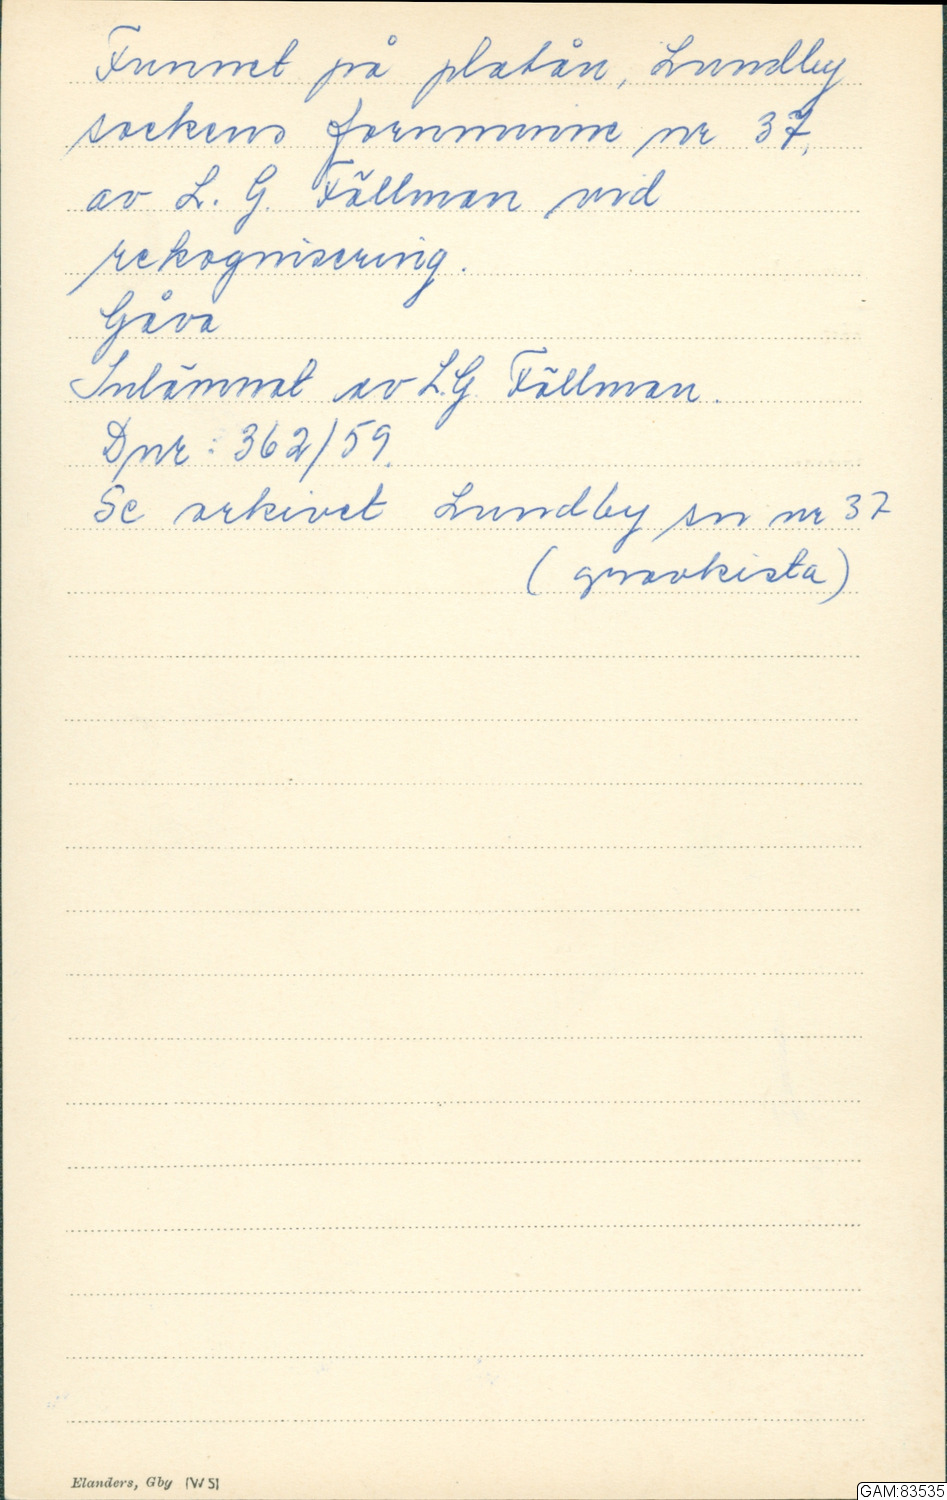 Funnet på platån, Lundby
sockens fornminne nr 37,
av L. G. Fällman vid
rekognisering.
Gåva
Inlämnat av L.G. Fällman.
Dnr: 362/59.
Se arkivet Lundby sn nr 37
(gravkista)
Elanders, Gby (W5)
GAM:83535